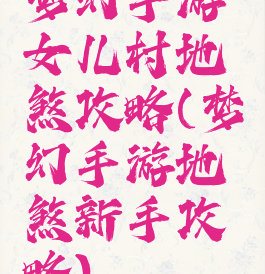 梦幻手游
女儿村地
煞攻略(梦
幻手游地
煞新手攻
略)